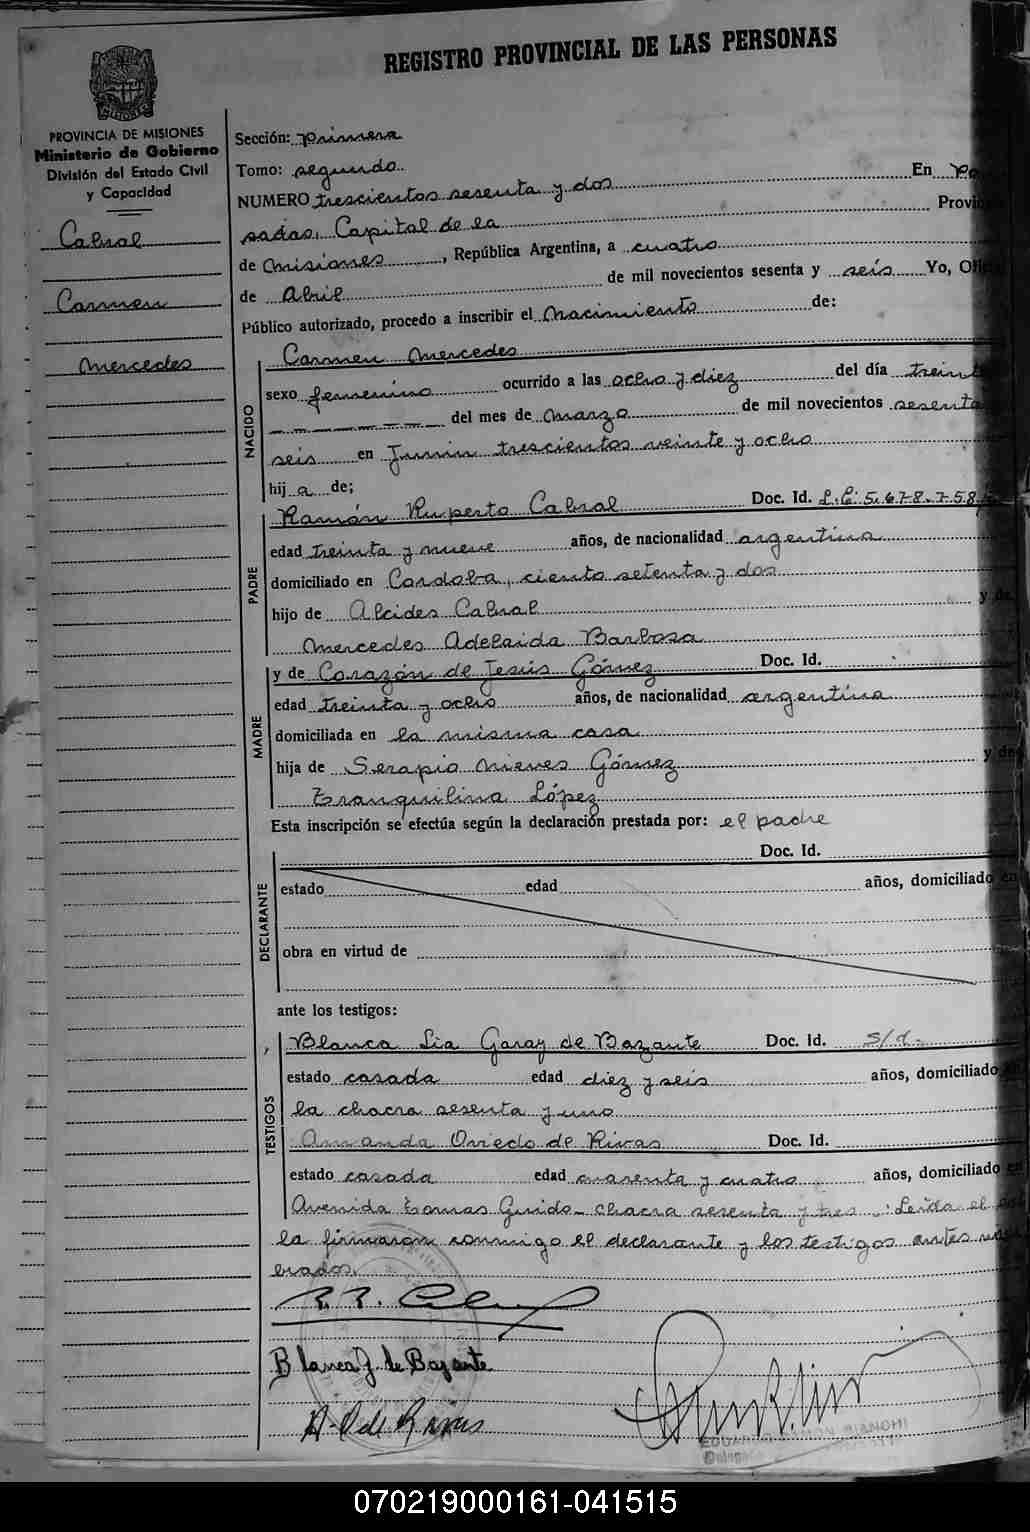 REGISTRO PROVINCIAL DE LAS PERSONAS
PROVINCIA DE MISIONES
Ministerio de Gobierno
División del Estado Civil
y Capacidad
Cabral
Carmen
Mercedes
Sección: primera
Tomo: segundo
NUMERO trescientos sesenta y dos En Po
sadas, Capital de la Provin
de Misiones, República Argentina, a cuatro
de Abril de mil novecientos sesenta y seis Yo, Ofi
Público autorizado, procedo a inscribir el nacimiento de:
NACIDO
Carmen Mercedes
sexo femenino ocurrido a las ocho y diez del día trein
del mes de marzo de mil novecientos sesenta
seis en Junín trescientos veinte y ocho
hija de;
PADRE
Ramón Ruperto Cabral Doc. Id. L.E: 5.678.758
edad treinta y nueve años, de nacionalidad argentina
domiciliado en Cordoba, ciento setenta y dos
hijo de Alcides Cabral y de
Mercedes Adelaida Barbosa
MADRE
y de Corazón de Jesús Gómez Doc. Id.
edad treinta y ocho años, de nacionalidad argentina
domiciliada en la misma casa
hija de Serapio Nieves Gómez y de
Tranquilina López
Esta inscripción se efectúa según la declaración prestada por: el padre
DECLARANTE
Doc. Id.
estado edad años, domiciliado en
obra en virtud de
ante los testigos:
TESTIGOS
Blanca Lia Garay de Bazante Doc. Id. s/d.
estado casada edad diez y seis años, domiciliado
la chacra sesenta y uno
Amanda Oviedo de Rivas Doc. Id.
estado casada edad cuarenta y cuatro años, domiciliado en
Avenida Tomas Guido - chacra sesenta y tres. Leída el
la firmaron conmigo el declarante y los testigos antes
brados.
Blanca J. de Bazante
A. O de Rivas
070219000161-041515